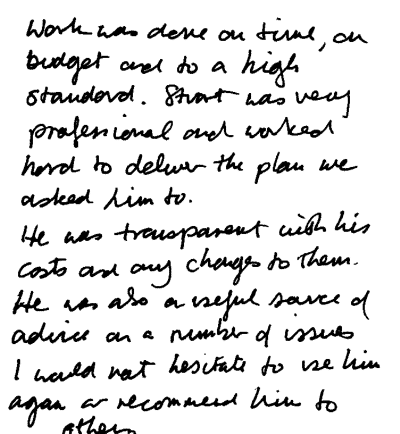 Work was done on time, on
budget and to a high
standard. Stuart was very
professional and worked
hard to deliver the plan we
asked him to.
He was transparent with his
costs and any changes to them.
He was also a useful source of
advice on a number of issues
I would not hesitate to use him
again or recommend him to
others